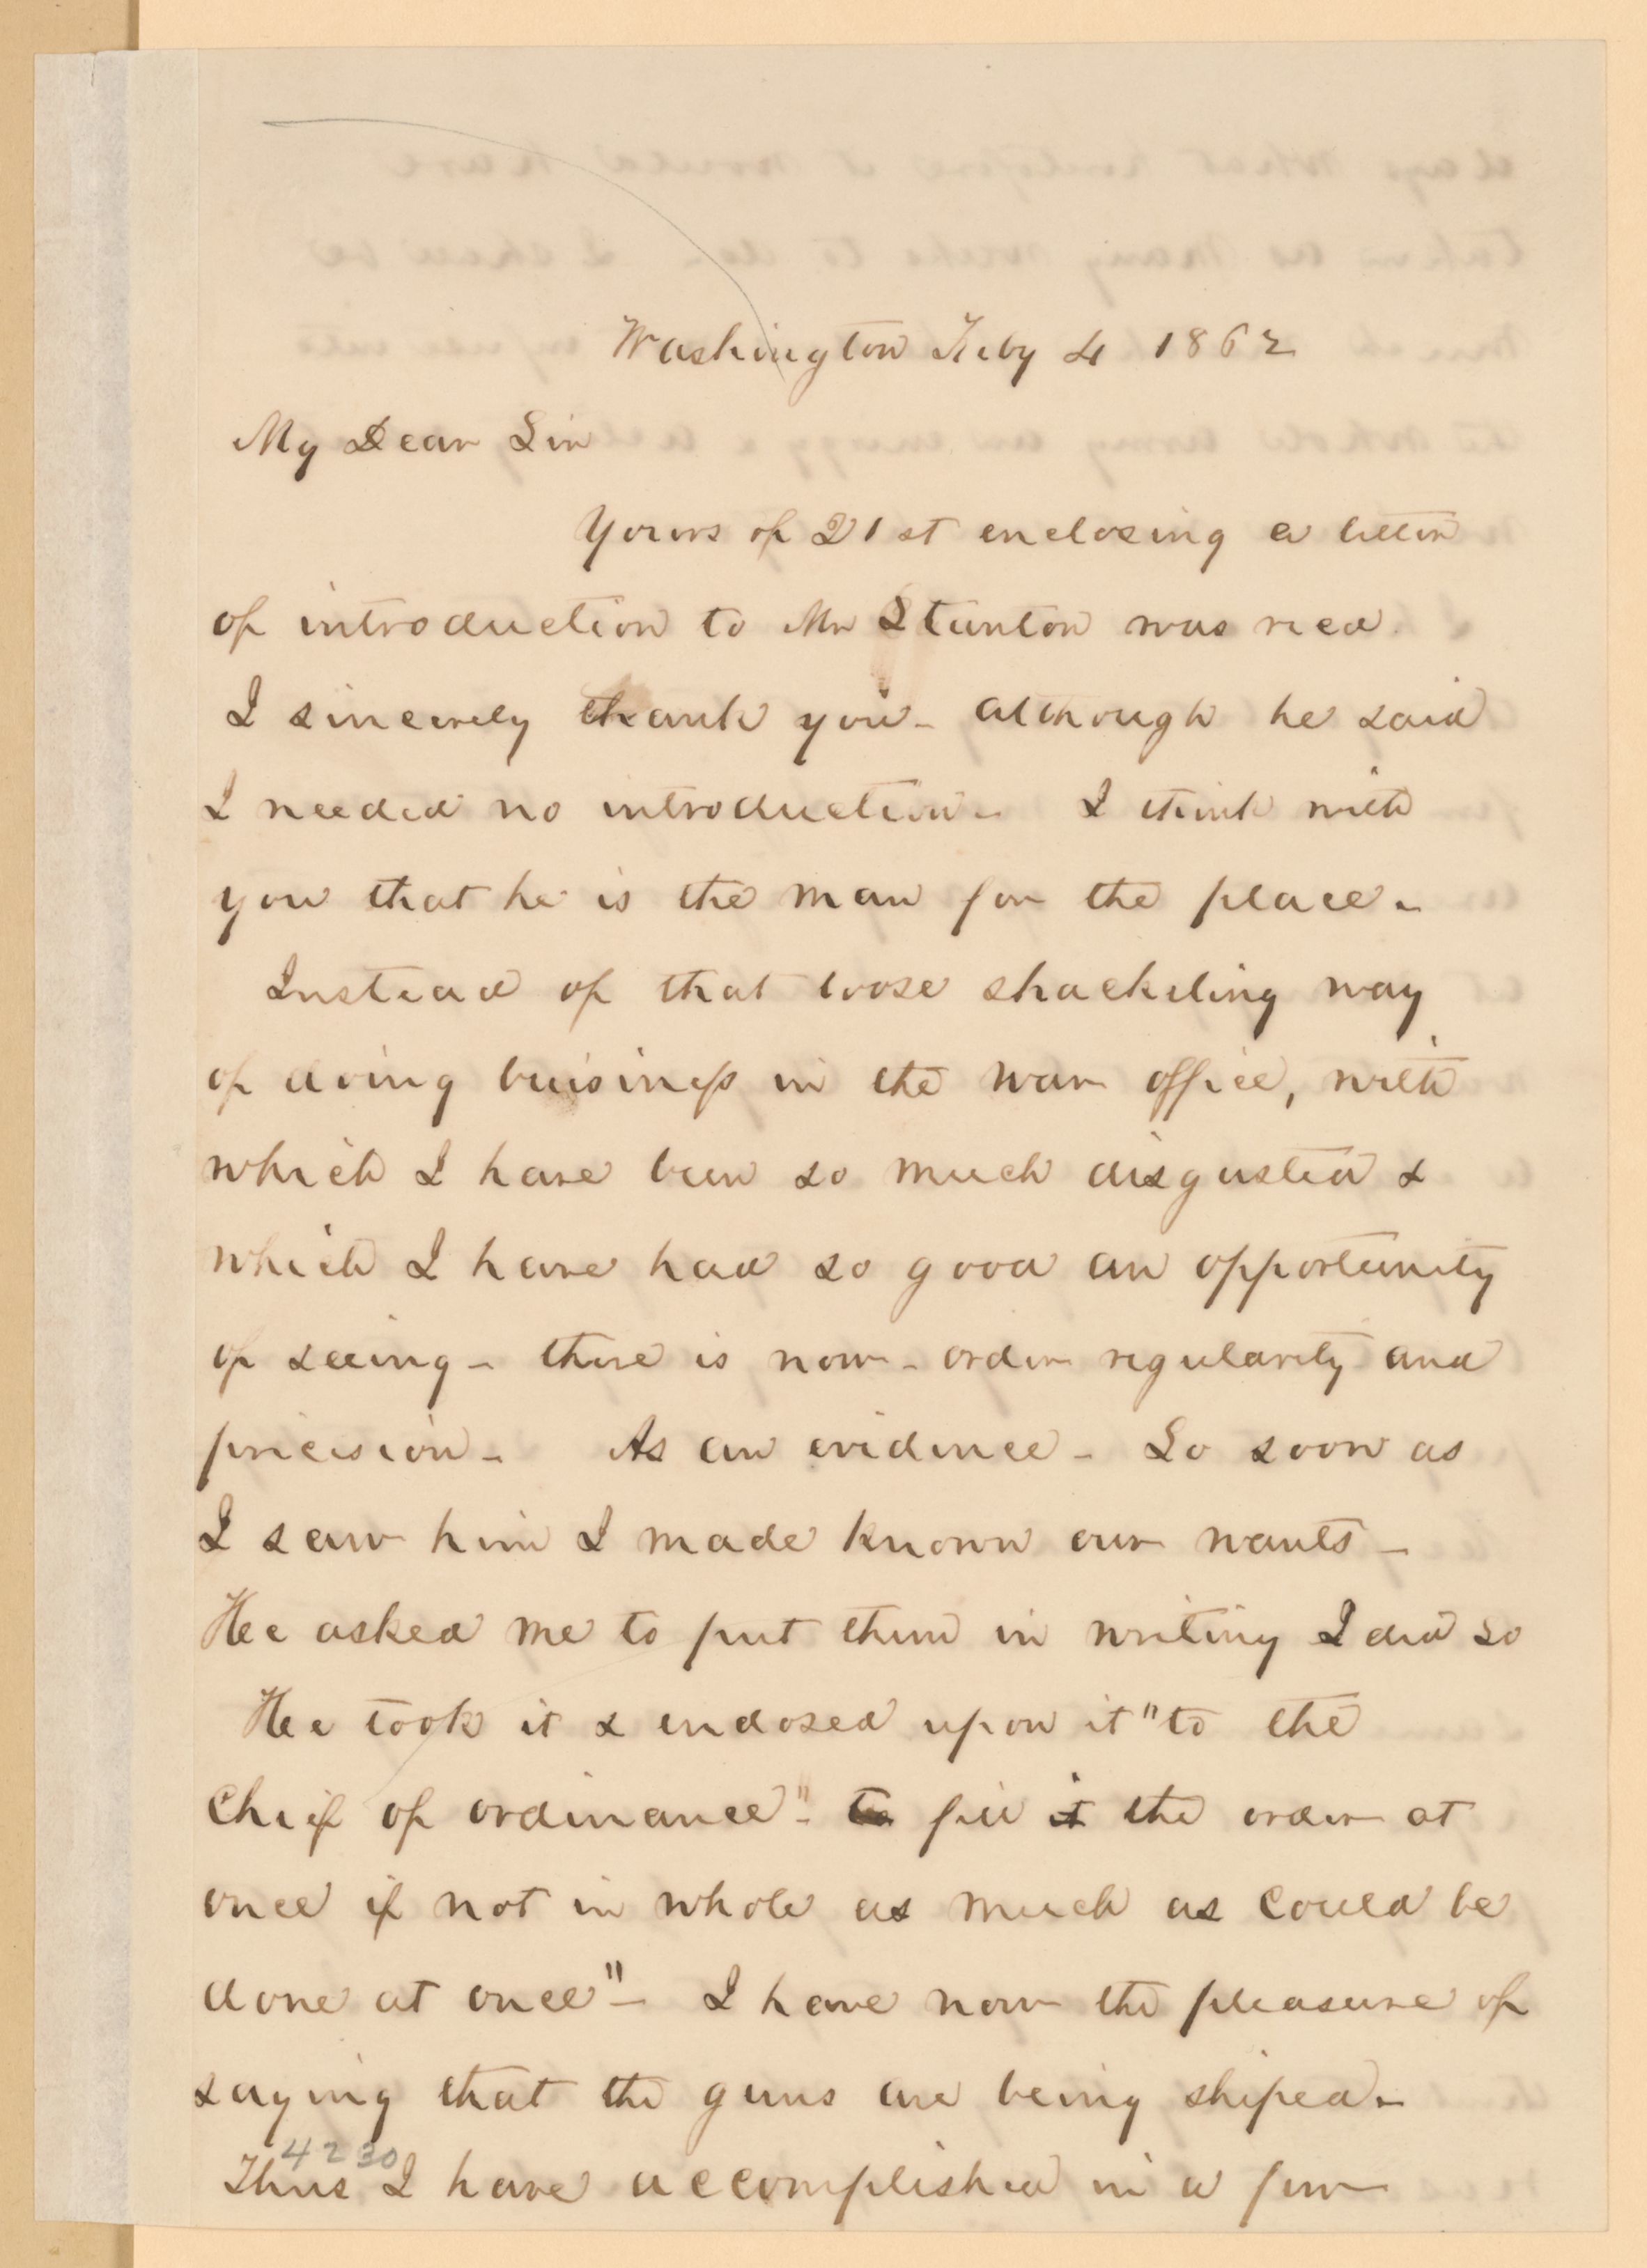 Washington Feby 4 1862
My Dear Sir
Yours of 21st enclosing a letter
of introduction to Mr Stanton was recd.
I sincerely thank you - although he said
I needed no introduction - I think with
you that he is the man for the place -
Instead of that loose shackeling way
of doing buisiness in the war office, with
which I have been so much disgusted &
which I have had so good an opportunity
of seeing - there is now - order regularity and
precision - As an evidence - So soon as
I saw him I made known our wants -
He asked me to put them in writing I did so
He took it & endosed upon it "to the
Chief of ordinance" - to fill it the order at
once if not in whole as much as could be
done at once" - I have now the pleasure of
saying that the guns are being shiped -
4230
Thus I have accomplished in a few